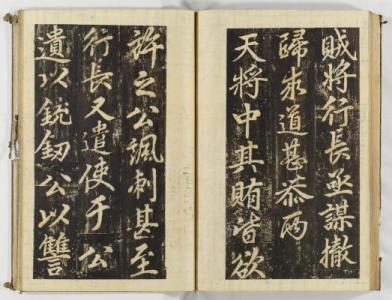 賊將行長亟謀撤
歸求道甚恭两
天將中其賄皆欲
許之公諷刺甚至
行長又遣使于公
遺以銃釰公以讐